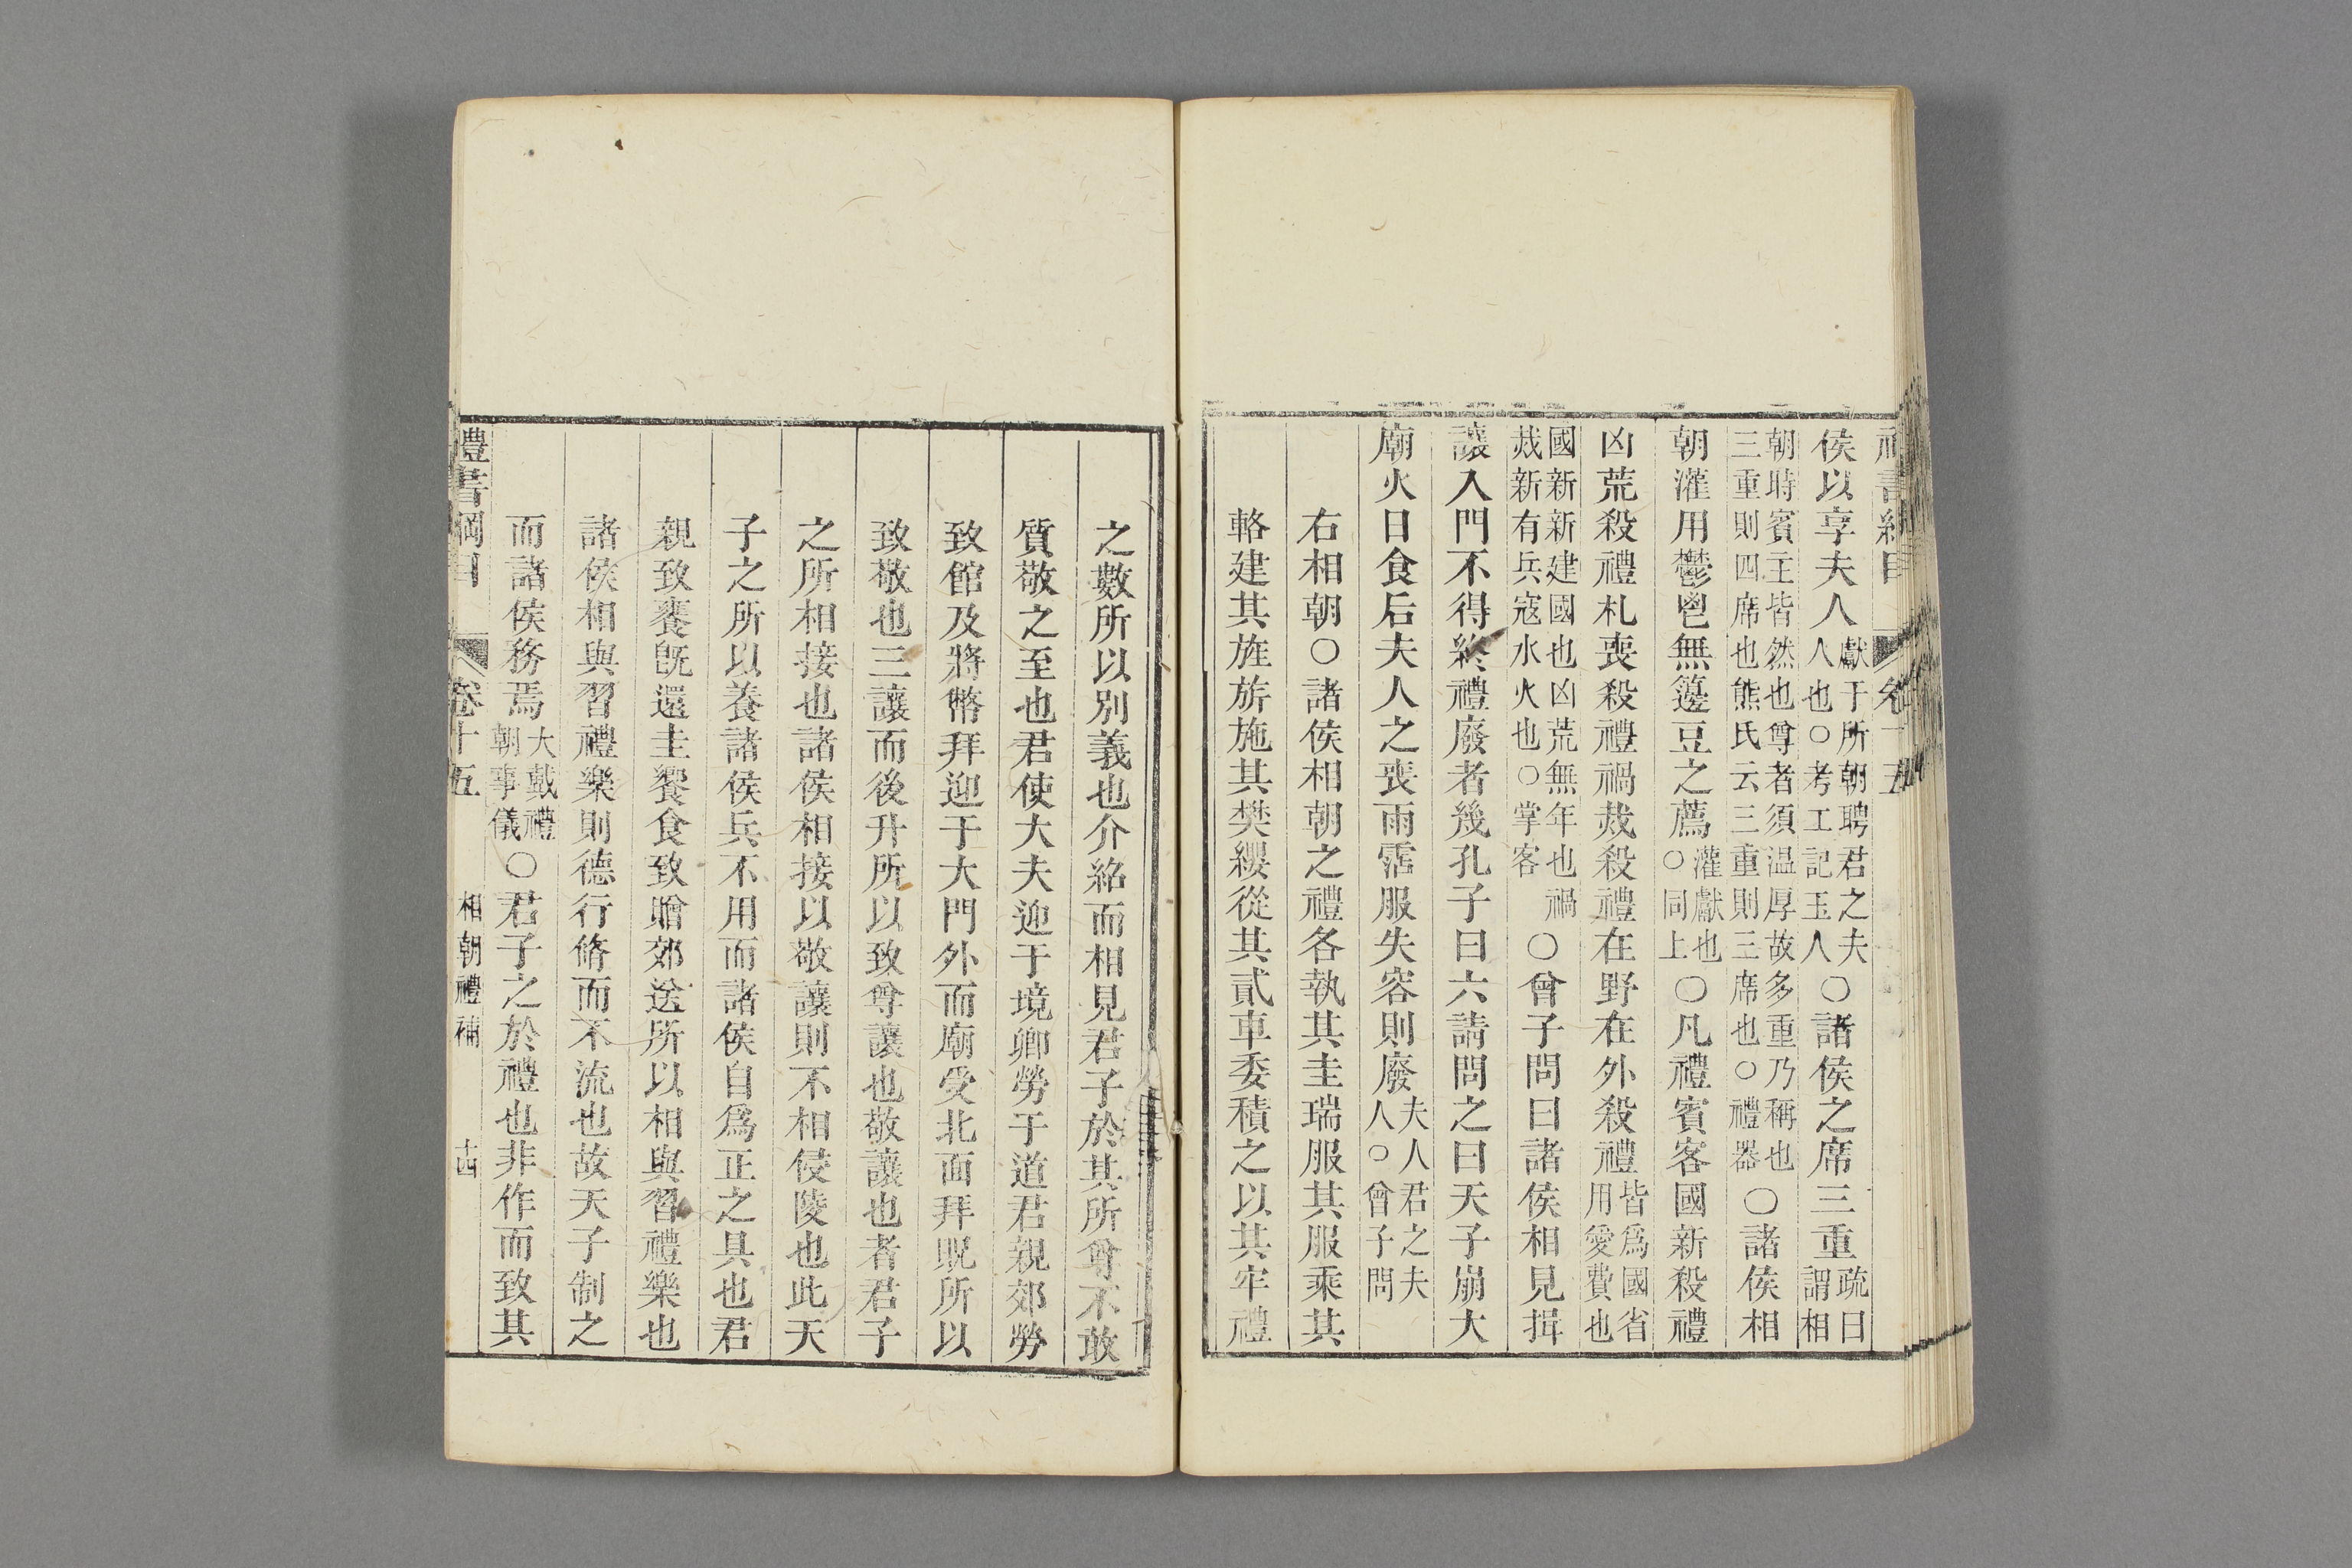 侯以享夫人獻于所朝聘君之夫人也○考工記玉人○諸侯之席三重疏曰謂相
朝時賓主皆然也尊者須温厚故多重乃稱也三重則四席也熊氏云三重則三席也○禮器○諸侯相
朝灌用鬱鬯無籩豆之薦灌獻也○同上○凡禮賓客國新殺禮
凶荒殺禮札喪殺禮禍烖殺禮在野在外殺禮皆爲國省用愛費也
國新新建國也凶荒無年也禍烖新有兵寇水火也○掌客○曾子問曰諸侯相見揖
讓入門不得終禮廢者幾孔子曰六請問之曰天子崩大
廟火日食后夫人之喪雨霑服失容則廢夫人君之夫人○曾子問
右相朝○諸侯相朝之禮各執其圭瑞服其服乘其
輅建其旌旂施其樊纓從其貳車委積之以其牢禮
之數所以別義也介紹而相見君子於其所尊不敢
質敬之至也君使大夫迎于境卿勞于道君親郊勞
致館及將幣拜迎于大門外而廟受北面拜貺所以
致敬也三讓而後升所以致尊讓也敬讓也者君子
之所相接也諸侯相接以敬讓則不相侵陵也此天
子之所以養諸侯兵不用而諸侯自爲正之具也君
親致饔旣還圭饗食致贈郊送所以相與習禮樂也
諸侯相與習禮樂則德行脩而不流也故天子制之
而諸侯務焉大戴禮朝事儀○君子之於禮也非作而致其
禮書綱目 卷十五 相朝禮補 十四